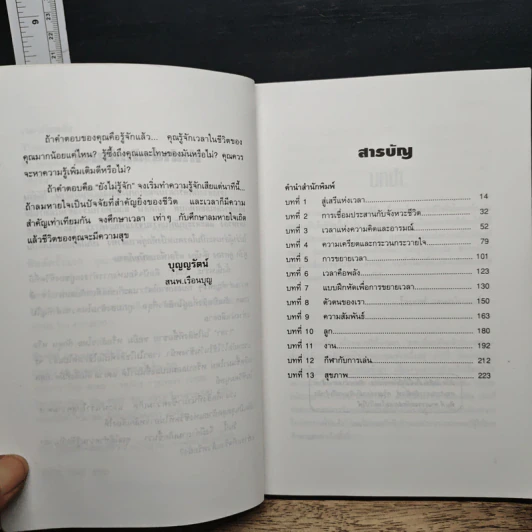 ถ้าคำตอบของคุณคือรู้จักแล้ว... คุณรู้จักเวลาในชีวิตของ
คุณมากน้อยแค่ไหน? รู้ซึ้งถึงคุณและโทษของมันหรือไม่? คุณควร
จะหาความรู้เพิ่มเติมดีหรือไม่?
ถ้าคำตอบคือ "ยังไม่รู้จัก" จงเริ่มทำความรู้จักเสียแต่นาทีนี้...
ถ้าลมหายใจเป็นปัจจัยที่สำคัญยิ่งของชีวิต และเวลาก็มีความ
สำคัญเท่าเทียมกัน จงศึกษาเวลา เท่าๆ กับศึกษาลมหายใจเถิด
แล้วชีวิตของคุณจะมีความสุข
บุญญรัตน์
สนพ.เรือนบุญ
สารบัญ
คำนำสำนักพิมพ์
บทที่ 1 สู่เสรีแห่งเวลา 14
บทที่ 2 การเชื่อมประสานกับจังหวะชีวิต 32
บทที่ 3 เวลาแห่งความคิดและอารมณ์ 52
บทที่ 4 ความเครียดและกระวนกระวายใจ 79
บทที่ 5 การขยายเวลา 101
บทที่ 6 เวลาคือพลัง 123
บทที่ 7 แบบฝึกหัดเพื่อการขยายเวลา 130
บทที่ 8 ตัวตนของเรา 150
บทที่ 9 ความสัมพันธ์ 163
บทที่ 10 ลูก 180
บทที่ 11 งาน 192
บทที่ 12 กีฬากับการเล่น 212
บทที่ 13 สุขภาพ 223